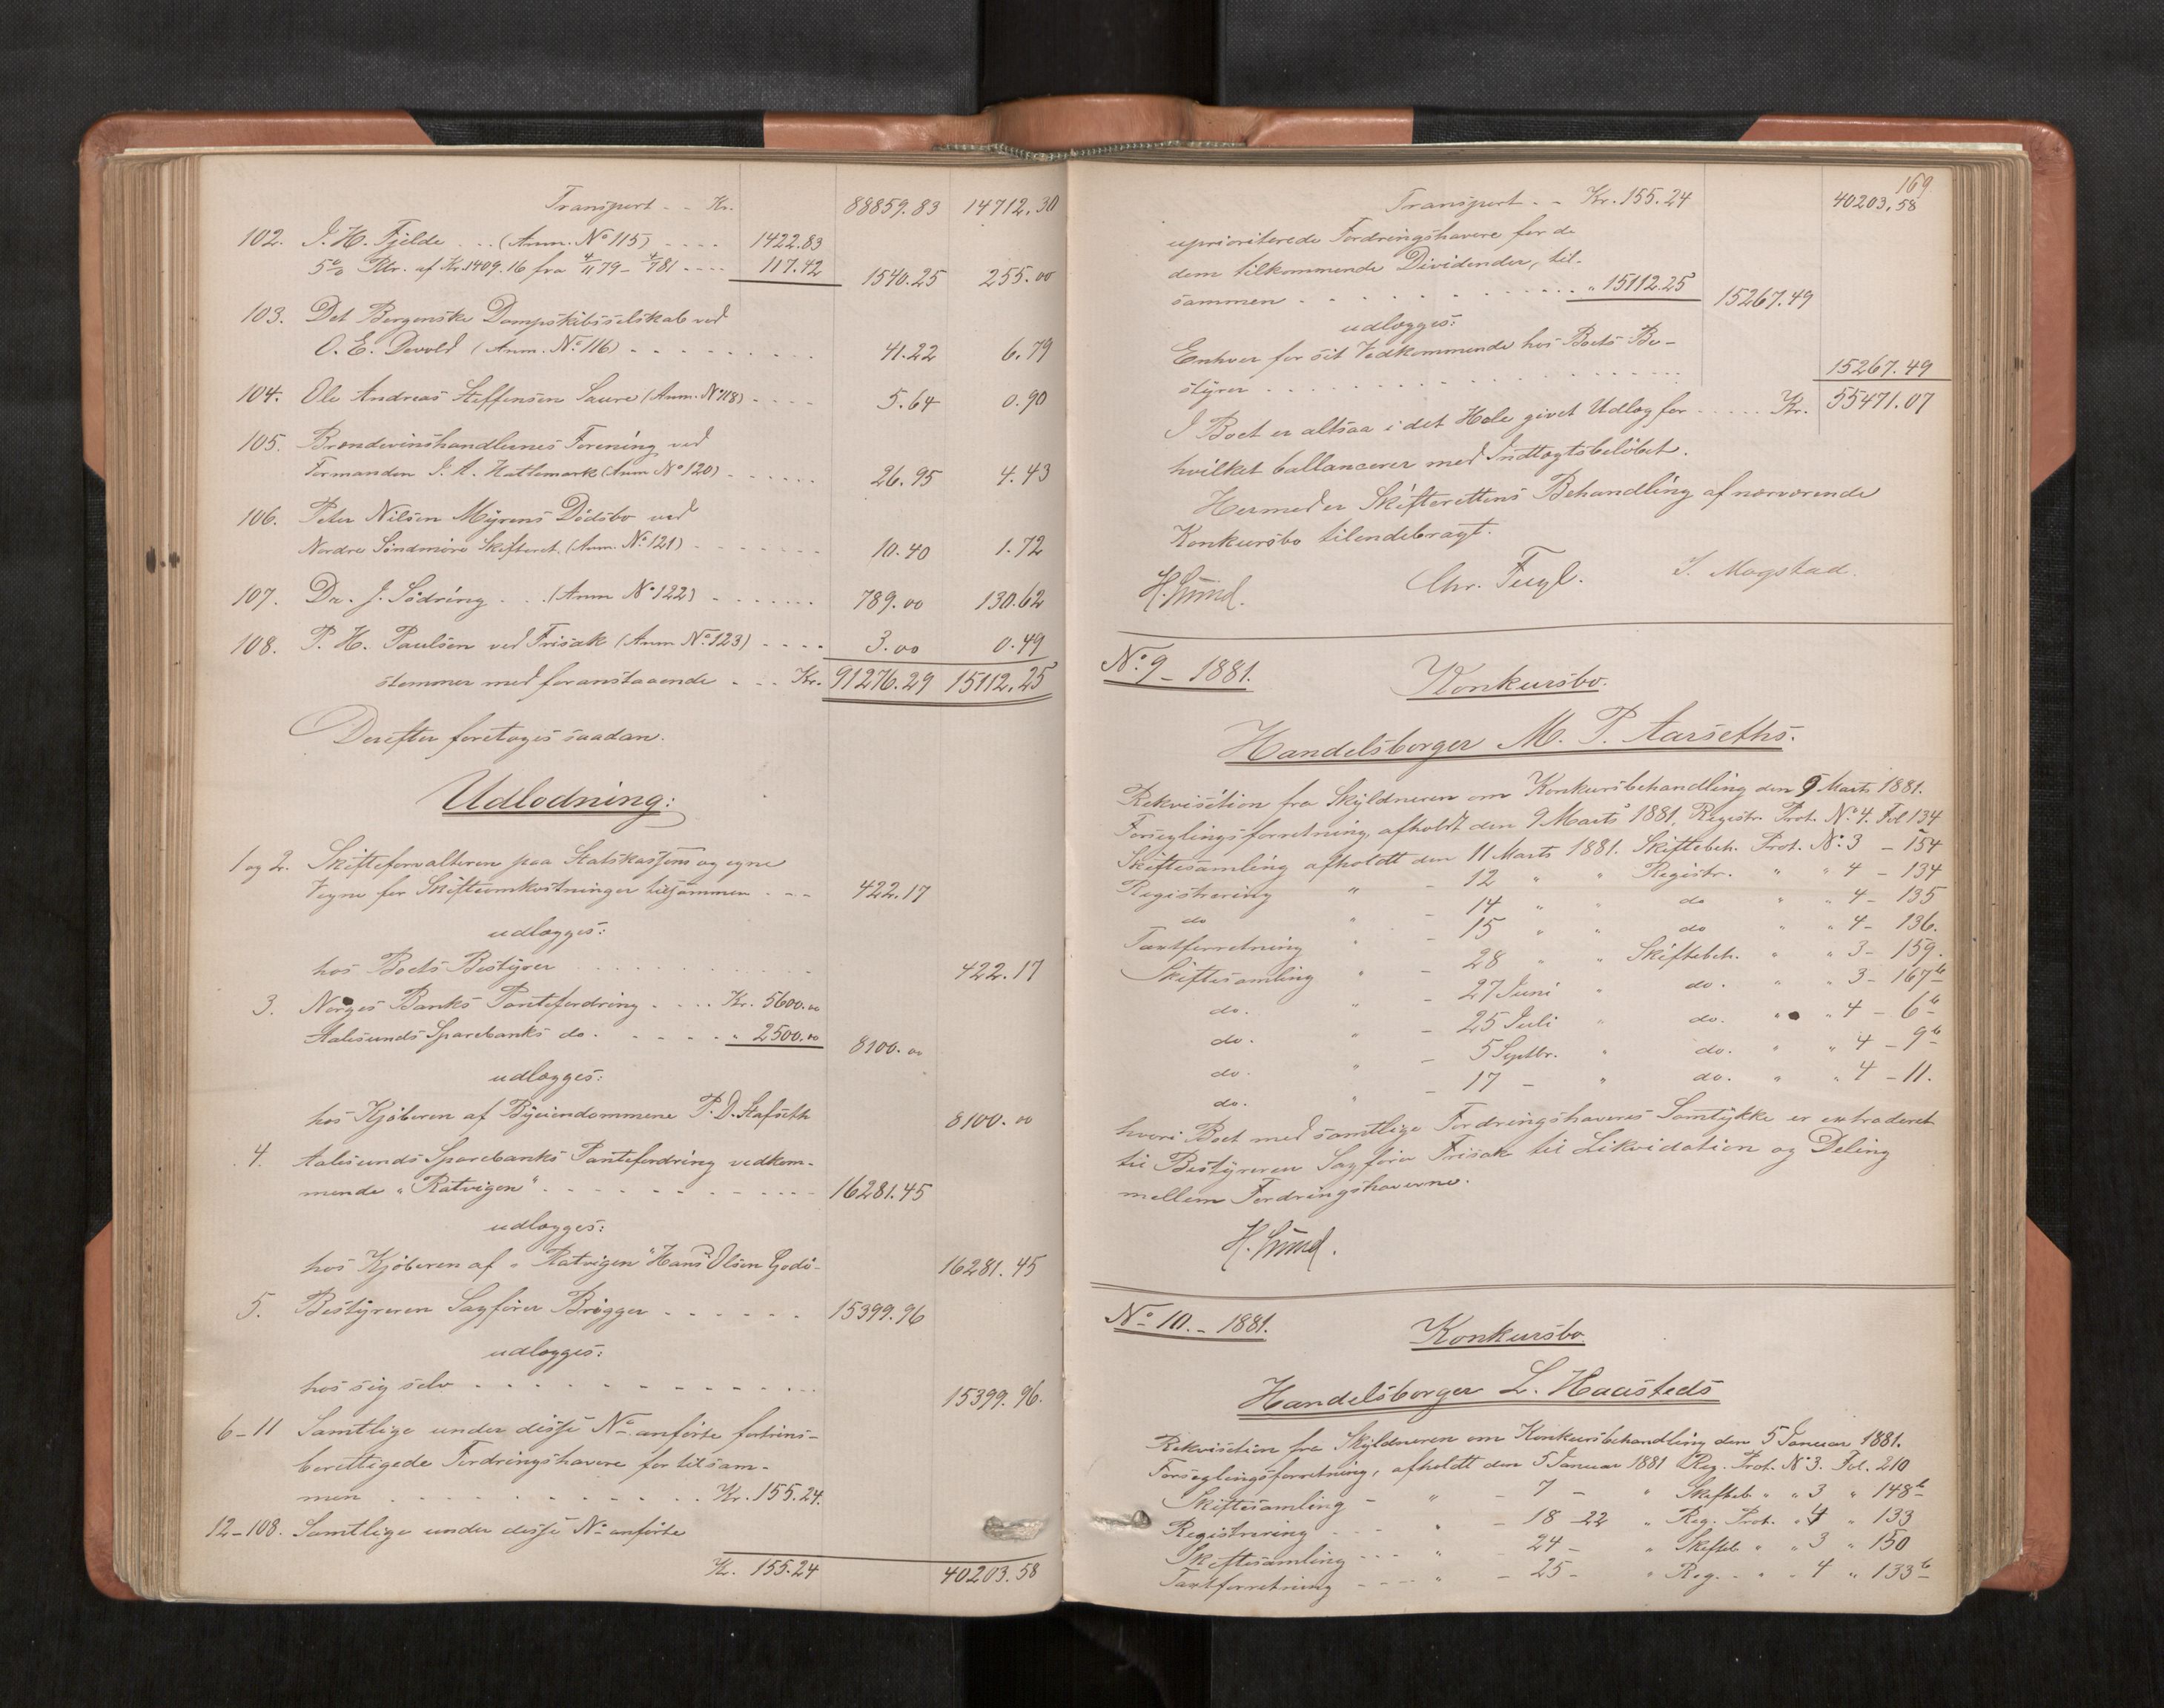 Transport - - Kr. 88859.83 14712.30
102. J. H. Fjelde . . (Anm. No 115) - - - - 1422.83
5% Rtr. af Kr. 1409.16 fra 4/11 79 - 4/7 81 - - - - 117.42 1540.25 255.00
103. Det Bergenske Dampskibsselskab ved
O. E. Devold (Anm. No 116) - - - - - - - - 41.22 6.79
104. Ole Andreas Steffensen Saure (Anm. No 118) - - - - 5.64 0.90
105. Brændevinshandlernes Forening ved
Formanden J. A. Hatlemark (Anm No 120) - - - - - - 26.95 4.43
106. Peter Nilsen Myrens Dödsbo ved
Nordre Söndmöre Skifteret (Anm. No 121) - - - - - - - 10.40 1.72
107. Dr. J. Södring . . . (Anm No 122) - - - - - - - 789.00 130.62
108. P. H. Paulsen ved Frisak (Anm No 123) - - - - 3.00 0.49
stemmer med foranstaaende - - - Kr. 91276.29 15112.25
Derefter foretages saadan.
Udlodning:
1 og 2. Skifteforvalteren paa Statskassens og egne
Vegne for Skifteomkostninger tilsammen - - - 422.17
udlægges:
hos Boets Bestyrer . . . . . . . . . . 422.17
3. Norges Banks Pantefordring - - . . Kr. 5600.00
Aalesunds Sparebanks do. - - - - - " 2500.00 8100.00
udlægges:
hos Kjöberen af Byeiendommene P. D. Stafseth 8100.00
4. Aalesunds Sparebanks Pantefordring vedkom-
mende "Ratvigen" . - - - - - - - - - 16281.45
udlægges:
hos Kjöberen af "Ratvigen" Hans Olsen Godö - 16281.45
5. Bestyreren Sagförer Brögger - - - - - - 15399.96
udlægges:
hos sig selv - - - - - - - - - - - - 15399.96.
6-11 Samtlige under disse No anförte fortrins-
berettigede Fordringshavere for tilsam-
men . - - - - - - - - - - Kr. 155.24.
12-108. Samtlige under disse No anförte
Kr. 155.24 40203.58
169
Transport - - Kr. 155.24 40203.58
uprioriterede Fordringshavere for de
dem tilkommende Dividender, til-
sammen - - - - - - - - - - " 15112.25 15267.49
udlægges:
Enhver for sit Vedkommende hos Boets Be-
styrer . . . . . . . . . . . . . . 15267.49
I Boet er altsaa i det Hele givet Udlæg for - - - - Kr. 55471.07
hvilket ballancerer med Indtægtsbelöbet.
Hermed er Skifterettens Behandling af nærværende
Konkursbo tilendebragt.
Chr. Fugl. J. Magstad.
No 9 - 1881.
Konkursbo.
Handelsborger M. P. Aarseths.
Rekvisition fra Skyldneren om Konkursbehandling den 9 Marts 1881.
Forseglingsforretning, afholdt den 9 Marts 1881. Registr. Prot. No 4. Fol 134
Skiftesamling afholdt den 11 Marts 1881. Skiftebeh. Prot. No 3 - 154
Registrering " - 12 " " Registr. " " 4 - 134
do " - 14 " " do " " 4 - 135
Taxtforretning " - 15 " " do " " 4 - 136.
Skiftesamling " - 28 " " Skiftebeh. " " 3 - 159.
do. " - 27 Juni " do. " " 3 - 167b
do. " - 25 Juli " do. " " 4 - 6b
do. " - 5 Septbr. " do. " " 4 - 9b
do. " - 17 - " do. " " 4 - 11.
hvori Boet med samtlige Fordringshaveres Samtykke er extraderet
til Bestyreren Sagförer Frisak til Likvidation og Deling
mellem Fordringshaverne.
No 10. - 1881.
Konkursbo
Handelsborger L. Haasteds
Rekvisition fra Skyldneren om Konkursbehandling den 5 Januar 1881.
Forseglingsforretning, afholdt den 5 Januar 1881 Reg. Prot. No 3. Fol. 210
Skiftesamling - " - 7 - " Skifteb " " 3 " 148b
Registrering - - - " - 18-22 " Reg. Prot. " 4 " 133
Skiftesamling - - - " - 24 - " Skifteb " " 3 " 150
Taxtforretning - - - - " - 25 - " Reg. - " " 4 " 133b